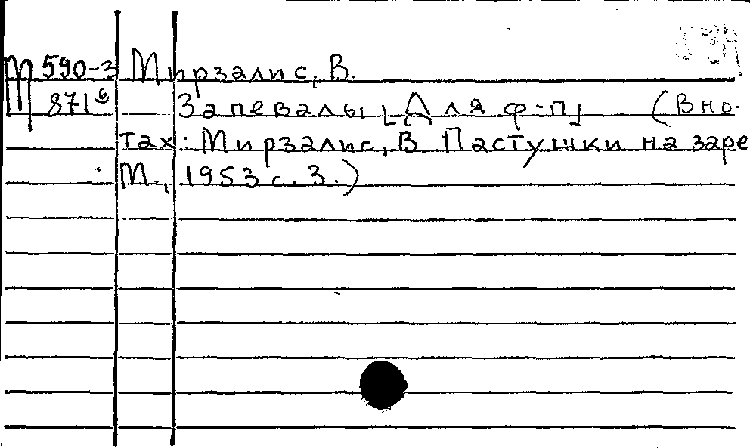 М 590-3 Мирзалис, В.
871б Запевалы [Для ф-п] (В но-
тах: Мирзалис, В Пастушки на заре
М., 1953 с. 3.)